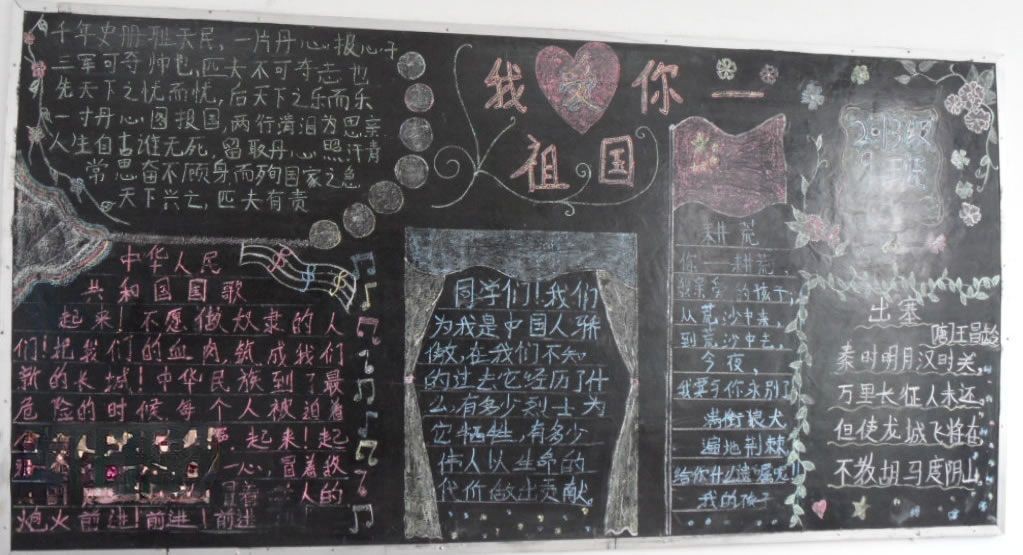 千年史册耻无名,一片丹心报心子
三军可夺帅也,匹夫不可夺志也
先天下之忧而忧,后天下之乐而乐
一寸丹心图报国,两行清泪为思亲
人生自古谁无死,留取丹心照汗青
常思奋不顾身而殉国家之急
天下兴亡,匹夫有责
我爱你一
祖国
中华人民
共和国国歌
起来!不愿做奴隶的人
们!把我们的血肉筑成我们
新的长城!中华民族到了最
危险的时候每个人被迫着
起来!起
一心,冒着敌
人的
炮火前进!前进!前进
同学们!我们
为我是中国人骄
傲,在我们不知
的过去它经历了什
么,有多少烈士为
它牺牲,有多少
伟人以生命的
代价做出贡献。
耕荒
你——耕荒,
我亲爱的孩子;
从荒沙中来,
到荒沙中去。
今夜,
我要与你永别了
满街狼犬
遍地荆棘
给你什么遗嘱呢!
我的孩子
出塞
唐王昌龄
秦时明月汉时关,
万里长征人未还。
但使龙城飞将在
不教胡马度阴山